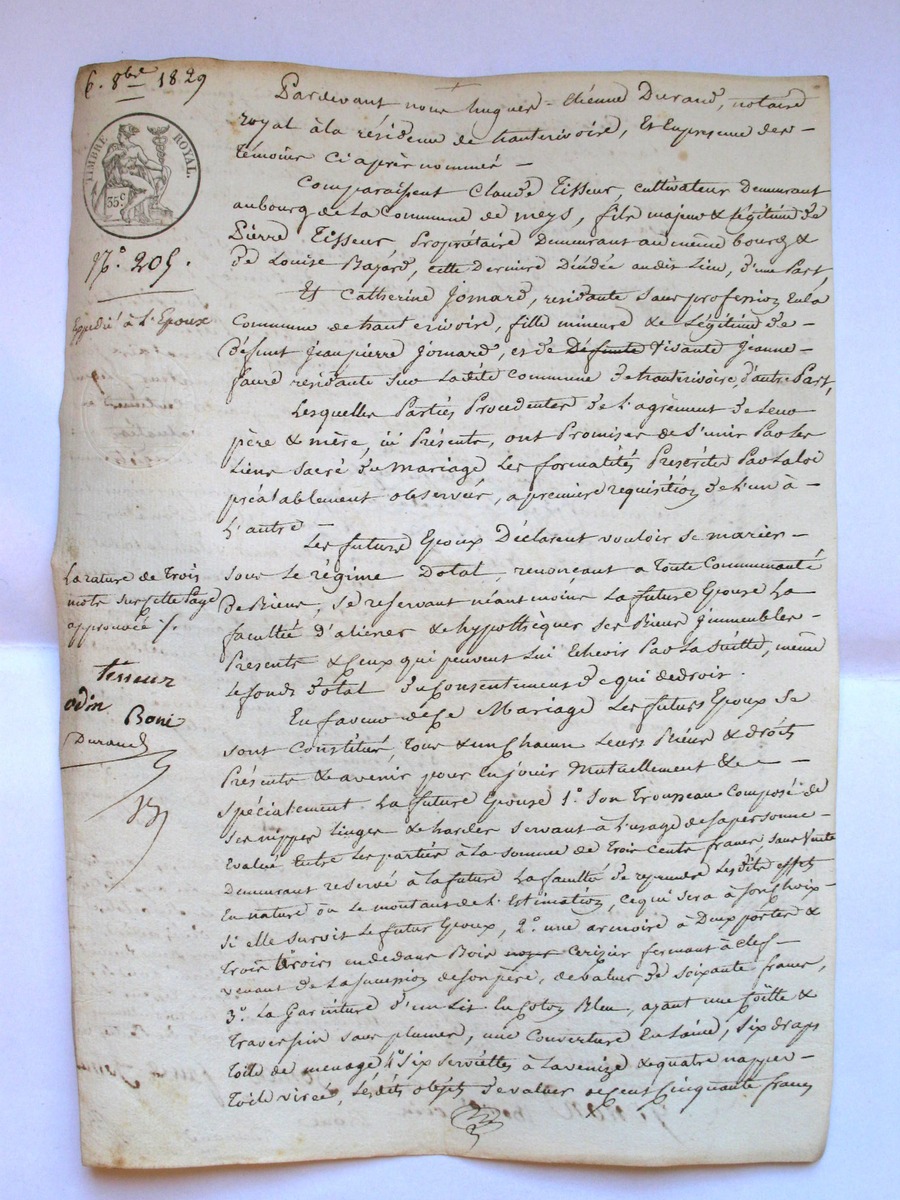 6. 8bre 1829
TIMBRE ROYAL.
35c
N.° 205.
Expédié à l'Epoux
Pardevant nous hugues-étienne Durand, notaire
royal à la résidence de hauterivoire, et en presence des
témoins ci après nommés
Comparaissent Claude Tisseur, cultivateur demeurant
au bourg de la Commune de meys, fils majeur & légitime de
Pierre Tisseur Propriétaire demeurant au même bourg &
de Louise Bajard, cette derniere décédée audit lieu, d'une Part
Et Catherine Jomard, residante sans profession en la
Commune de hauterivoire, fille mineure & Légitime de
défunt jean pierre Jomard, et de Defunte vivante jeanne
faure residante sur ladite Commune de hauterivoire, d'autre Part,
Lesquelles Parties Procedentes de l'agrément de leur
père & mère, ici Présents, ont Promises de s'unir Par les
liens sacré du mariage les formalités Prescrites Par la loi
préalablement observées, a premiere requisition de l'un à
L'autre
Les futurs Epoux Déclarent vouloir se marier
sous le régime Dotal, renonçant a toute Communauté
de Biens, se reservant néantmoins la future Epouse la
facultée d'aliener & hypothèquer ses Biens immeubles
Presents & Ceux qui peuvent lui Echeoir Par la suitte, même
le fonds dotal du Consentement de qui de droit.
La rature de trois
mots sur cette Page
approuvée /.
tisseur
odin
Boni
Durand
En faveur de Ce Mariage les futurs Epoux se
sont Constitués, tous & un Chacun leurs Biens & droits
Présents & avenir pour en jouir mutuellement &
spécialement. La future Epouse 1.° son trousseau Composé de
ses nippes linges & hardes servant à l'usage de sa personne
Evalué Entre les parties à la somme de trois cents francs, sans vente
demeurant reservé à la future la faculté de reprendre lesdits effets
en nature ou le montant de l'Estimation, ce qui sera à son Choix
si elle survit le futur Epoux, 2.° une armoire à Deux portes &
trois tiroirs en dedans Bois noyer Cerisier fermant à clef
venant de la succession de son père, de valeur de soixante francs,
3.° La Garniture d'un Lit en Coton Bleu, ayant une Coëtte &
traversin sans plumes, une Couverture en Laine, six draps
toile de menage 4.° six serviettes à la venize & quatre nappes
toile virée, lesdits objets de valeur de Cent Cinquante francs